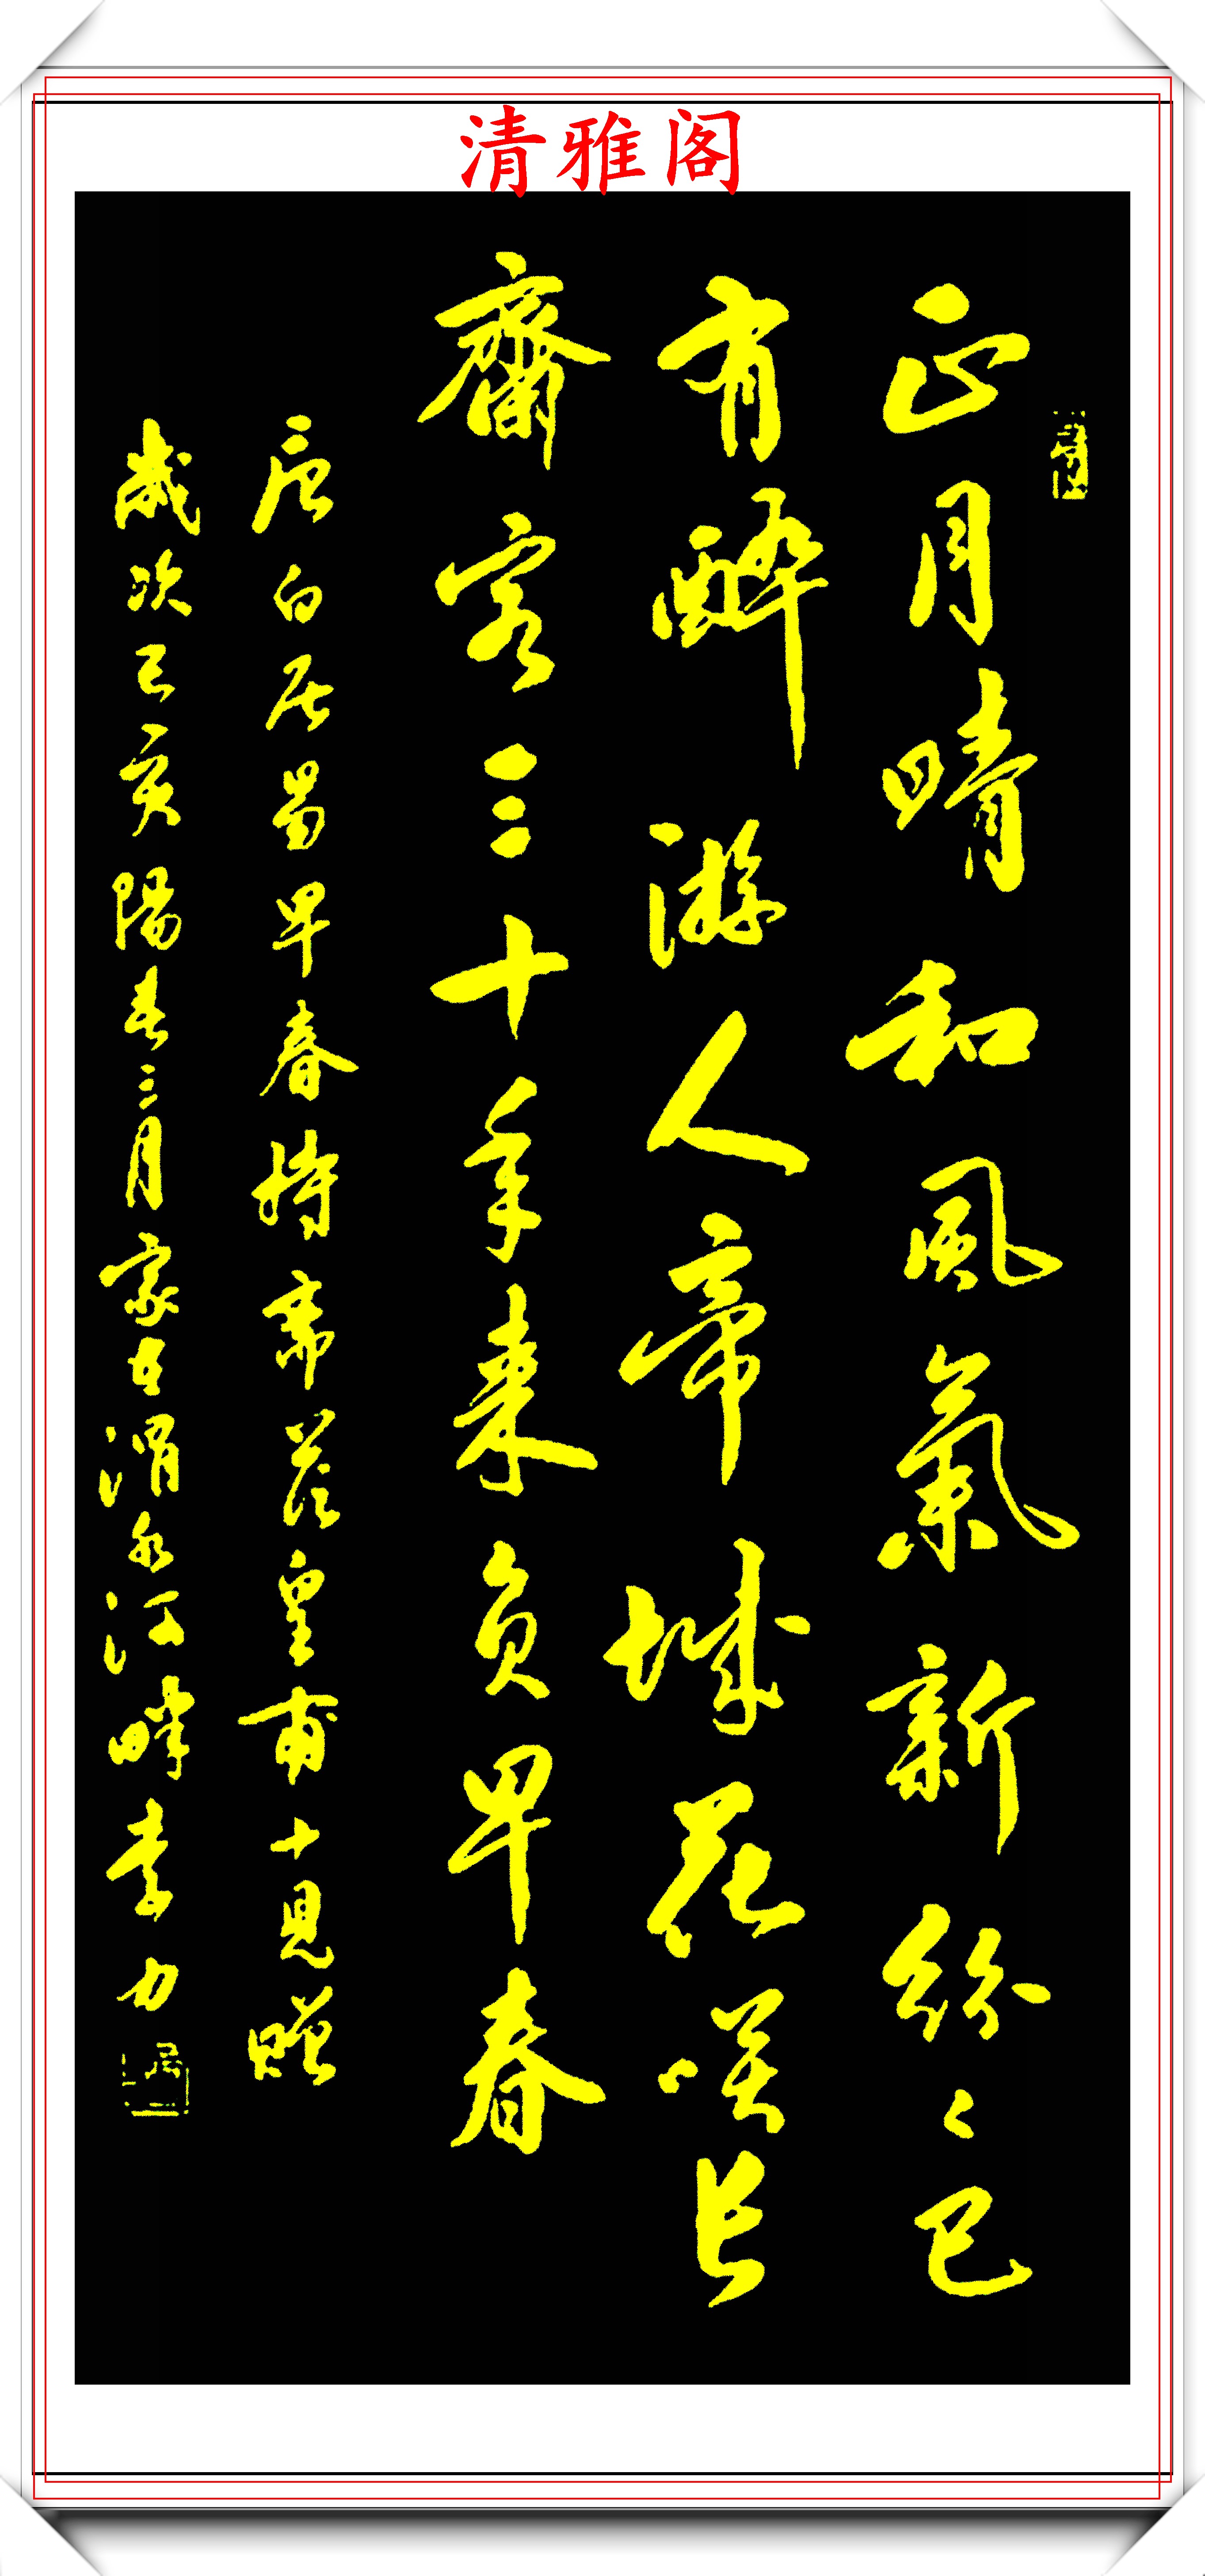 清雅阁
正月晴和風氣新紛々已
有醉游人帝城花咲长
齋客三十年来负早春
唐白居易早春持斋荅皇甫十見贈
歲次己亥陽春三月家在渭水河畔李力